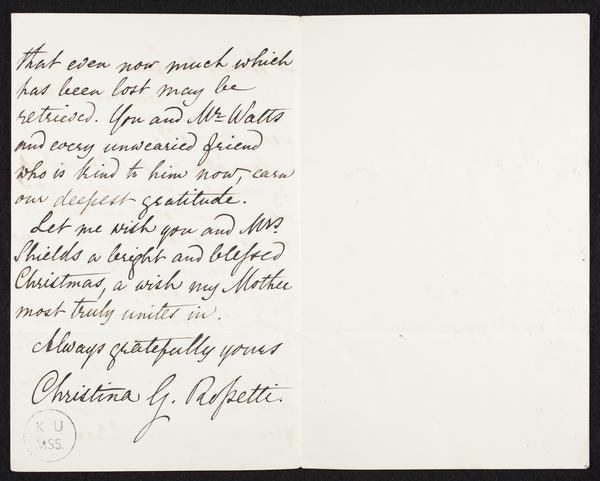 that even now much which
has been lost may be
retrieved. You and Mr. Watts
and every unwearied friend
who is kind to him now, earn
our deepest gratitude.
Let me wish you and Mrs.
Shields a bright and blessed
Christmas, a wish my Mother
most truly unites in.
Always gratefully yours
Christina G. Rossetti.
K U
MSS.